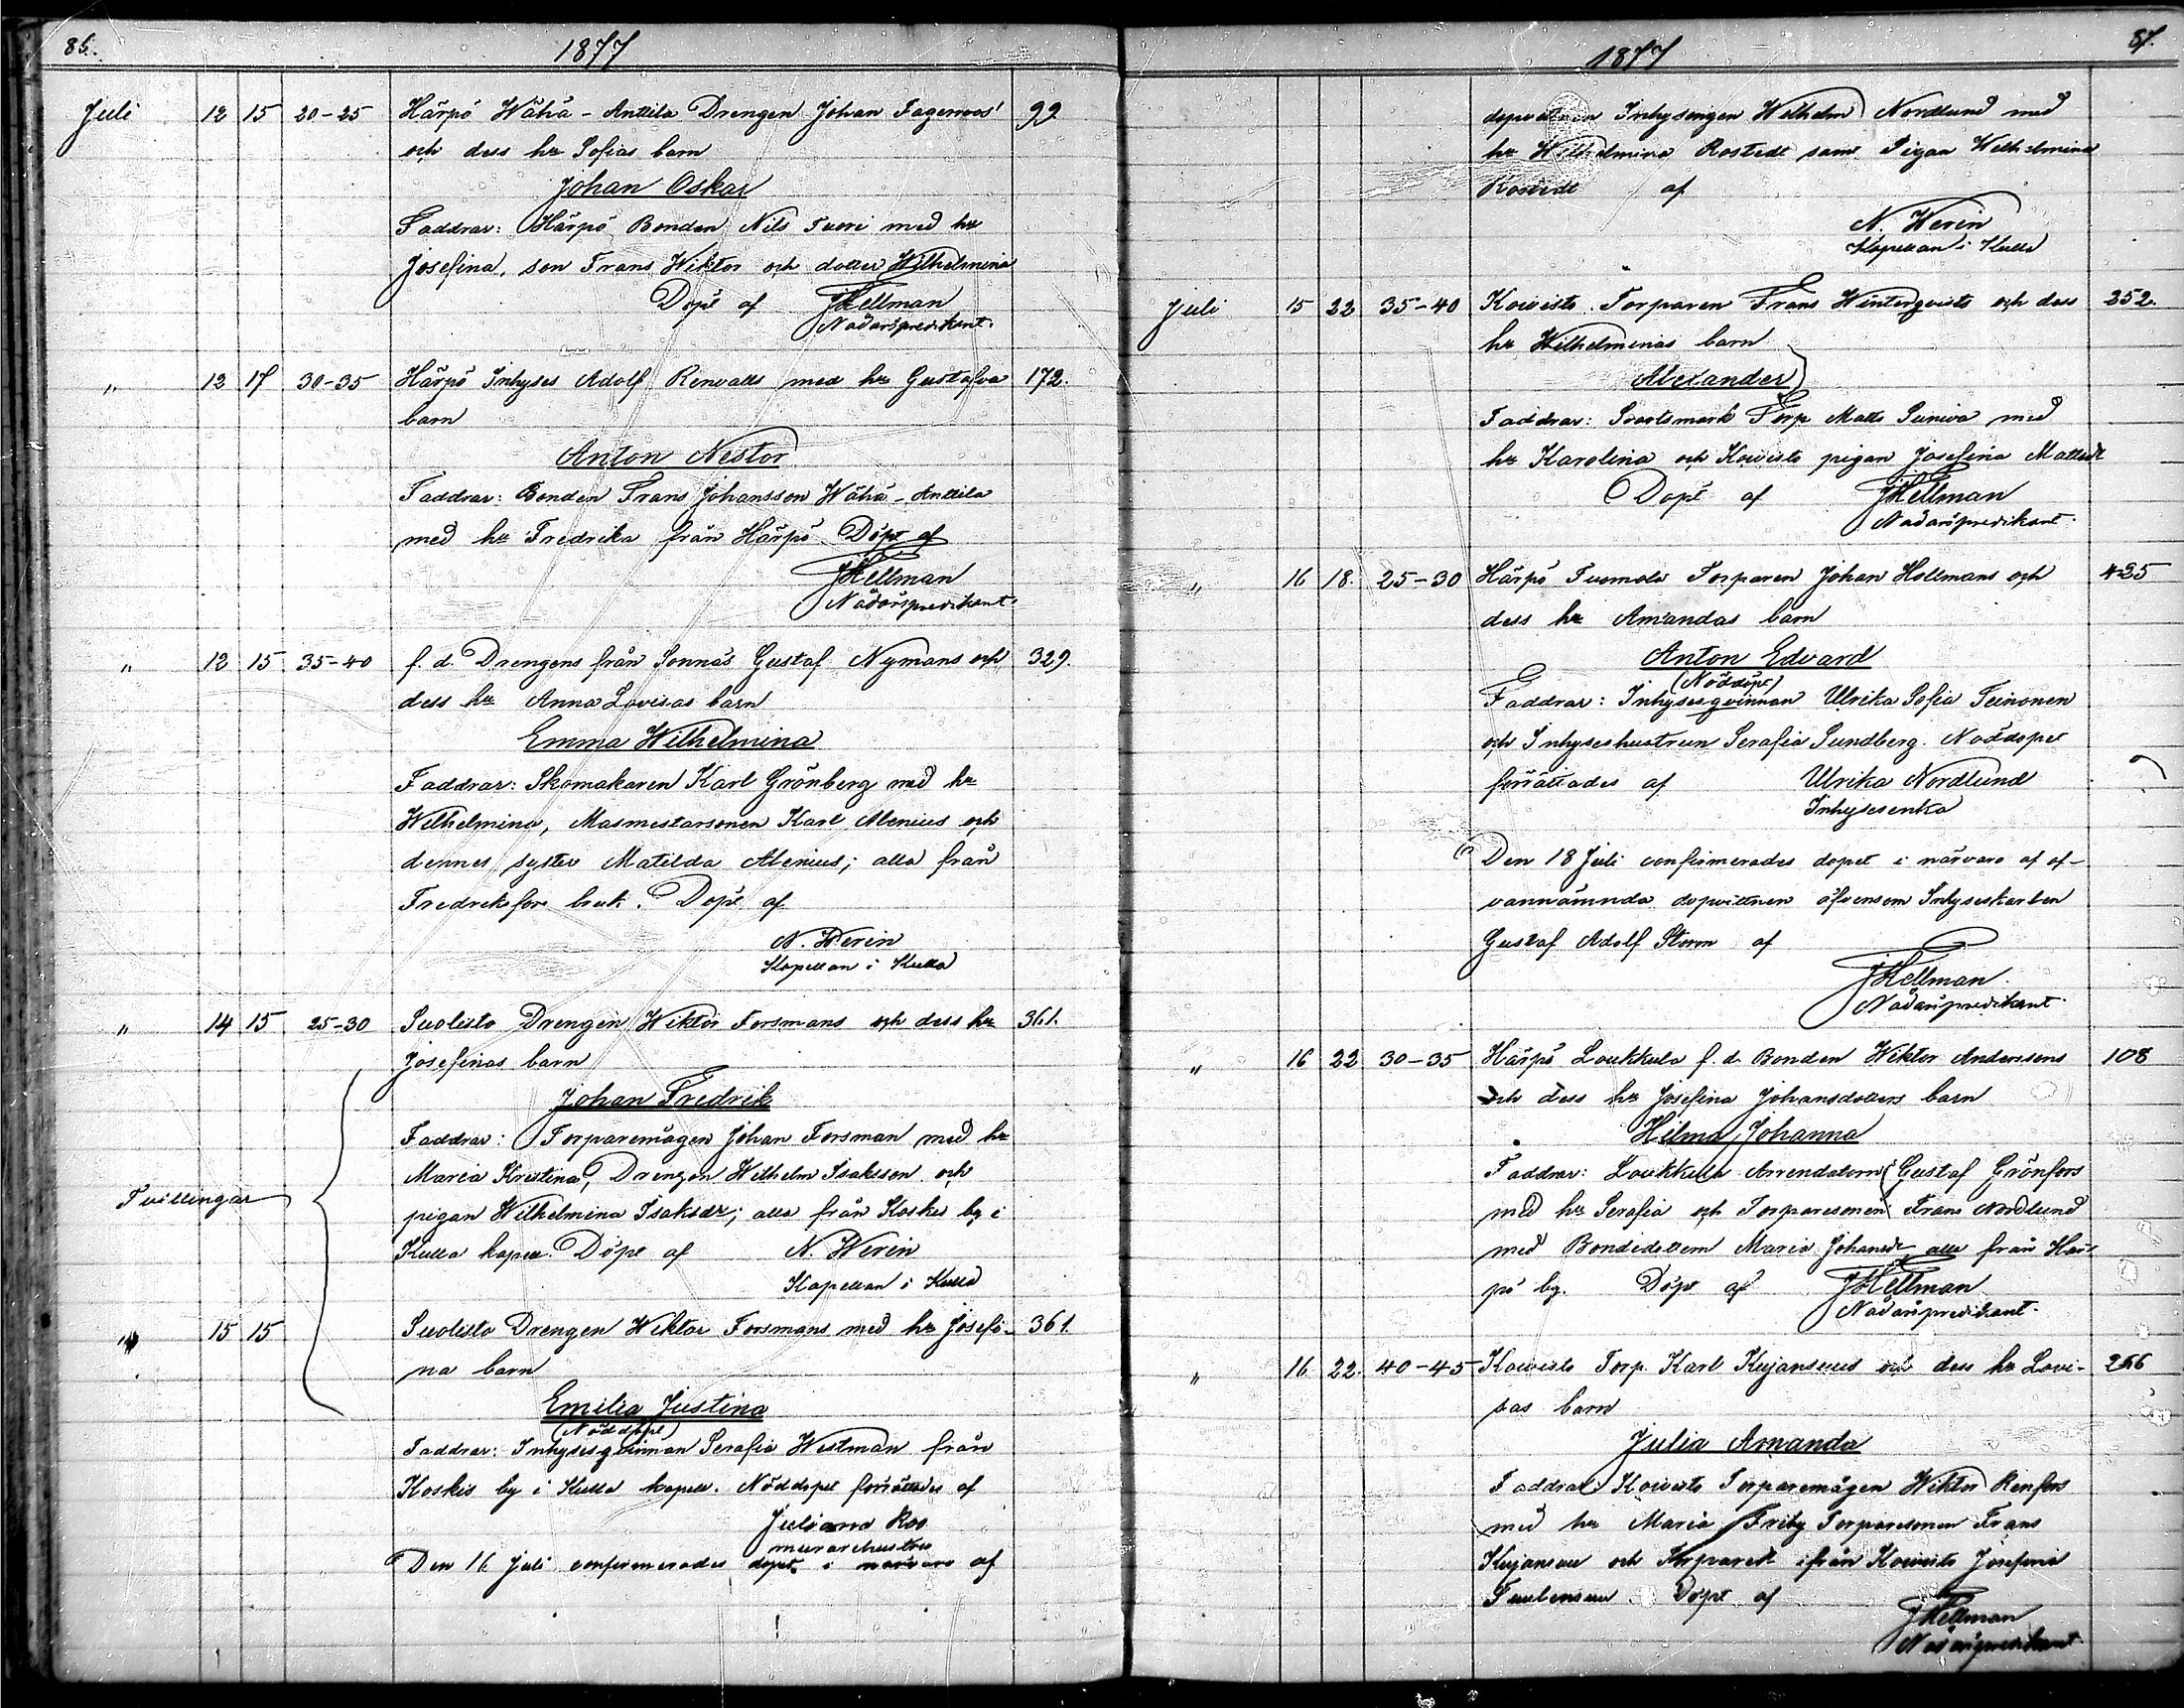 86.
1877
Juli 12 15 20-25 Härpö Wähä-Anttila Drengen Johan Fagerroos' 99
och dess hu Sofias barn
Johan Oskar
Faddrar: Härpö Bonden Nils Tuori med hu
Josefina, son Frans Wiktor och dotter Wilhelmina
Döpt af JHellman
Nådårspredikant.
" 12 17 30-35 Härpö Inhyses Adolf Renvalls med hu Gustafva 172.
barn
Anton Nestor
Faddrar: Bonden Frans Johansson Wähä-Anttila
med hu Fredrika från Härpö Döpt af
JHellman
Nådårspredikant.
" 12 15 35-40 f. d. Drengens från Sonnäs Gustaf Nymans och 329.
dess hu Anna Lovisas barn
Emma Wilhelmina
Faddrar: Skomakaren Karl Grönberg med hu
Wilhelmina, Masmestarsonen Karl Alenius och
dennes syster Matilda Alenius; alla från
Fredriksfors bruk. Döpt af
N. Werin
Kapellan i Kulla
" 14 15 25-30 Suolisto Drengen Wiktor Forsmans och dess hu 361.
Josefinas barn
Johan Fredrik
Faddrar: Torparemågen Johan Forsman med hu
Maria Kristina, Drengen Wilhelm Isaksson och
Tvillingar
pigan Wilhelmina Isaksdr; alla från Koskis by i
Kulla kapell. Döpt af N. Werin
Kapellan i Kulla
" 15 15 Suolisto Drengen Wiktor Forsmans med hu Josefi- 361.
na barn
Emilia Justina
(Nöddöpt)
Faddrar: Inhysesqvinnan Serafia Westman från
Koskis by i Kulla kapell. Nöddopet förrättades af
Juliana Roo
murarehustru
Den 16 Juli confirmerades dopet i närvaro af
87.
1877
dopvittnen Inhysengen Wilhelm Nordlund med
hu Wilhelmina Rostedt samt Pigan Wilhelmina
Rostedt af
N. Werin
Kapellan i Kulla
Juli 15 22 35-40 Koivisto Torparen Frans Winterqvists och dess 252.
hu Wilhelminas barn
Alexander
Faddrar: Svartsmark Torp Matts Suniva med
hu Karolina och Koivisto pigan Josefina Mattsdr
Döpt af JHellman
Nådårspredikant.
" 16 18. 25-30 Härpö Tuomola Torparen Johan Hollmans och 425
dess hu Amandas barn
Anton Edvard
(Nöddöpt)
Faddrar: Inhysesqvinnan Ulrika Sofia Teinonen
och Inhyseshustrun Serafia Sundberg. Nöddopet
förrättades af Ulrika Nordlund
Inhysesenka
Den 18 Juli confirmerades dopet i närvaro af of-
vannämnda dopvittnen äfvensom Inhyseskarlen
Gustaf Adolf Storm af
JHellman.
Nådårspredikant.
" 16 22 30-35 Härpö Loukkula f. d. Bonden Wiktor Anderssons 108
och dess hu Josefina Johansdotters barn
Hilma Johanna
Faddrar: Loukkula Arrendatorn Gustaf Grönfors
med hu Serafia och Torparesonen Frans Nordlund
med Bondedottern Maria Johansdr alla från Här-
pö by. Döpt af JHellman
Nådårspredikant.
" 16 22. 40-45 Koivisto Torp. Karl Kujansuus och dess hu Lovi- 266
sas barn
Julia Amanda
Faddrar: Koivisto Torparemågen Wiktor Renfors
med hu Maria, Friby Torparesonen Frans
Kujansuu och från Koivisto Josefina
Döpt af
JHellman
Nådårspredikant